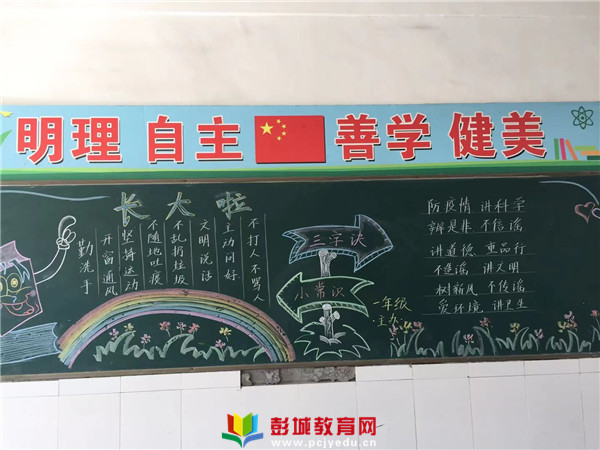 明理 自主 善学 健美
长大啦
勤洗手
开窗通风
坚持运动
不随地吐痰
不乱扔垃圾
文明说话
主动问好
不打人不骂人
三字诀
小常识
一年级
主办
防疫情 讲科学
辨是非 不信谣
讲道德 重品行
不造谣 讲文明
树新风 不传谣
爱环境 讲卫生
彭城教育网
www.pcjyedu.cn